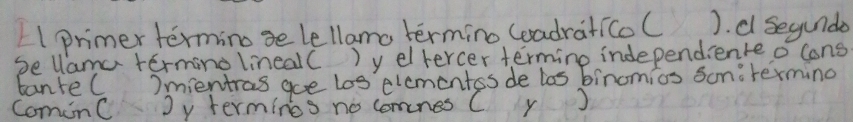 El primer término se le llama término cuadrático (    ). el segundo
se llama término lineal (  ) y el tercer término independiente o cons
tante (     ) mientras que los elementos de los binomios son: termino
común (    ) y términos no comunes (   y   )